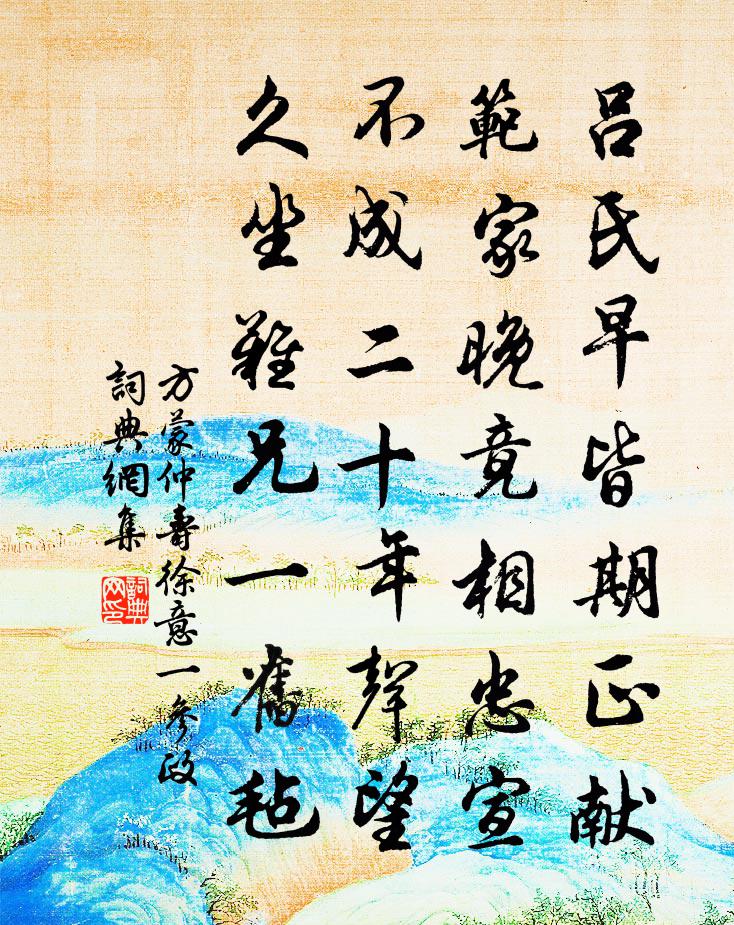 吕氏早皆期正献
範家晚竟相忠宣
不成二十年聲望
久坐難兄一舊毡
方蒙仲壽徐意一參政
詞典網集
詞典網印